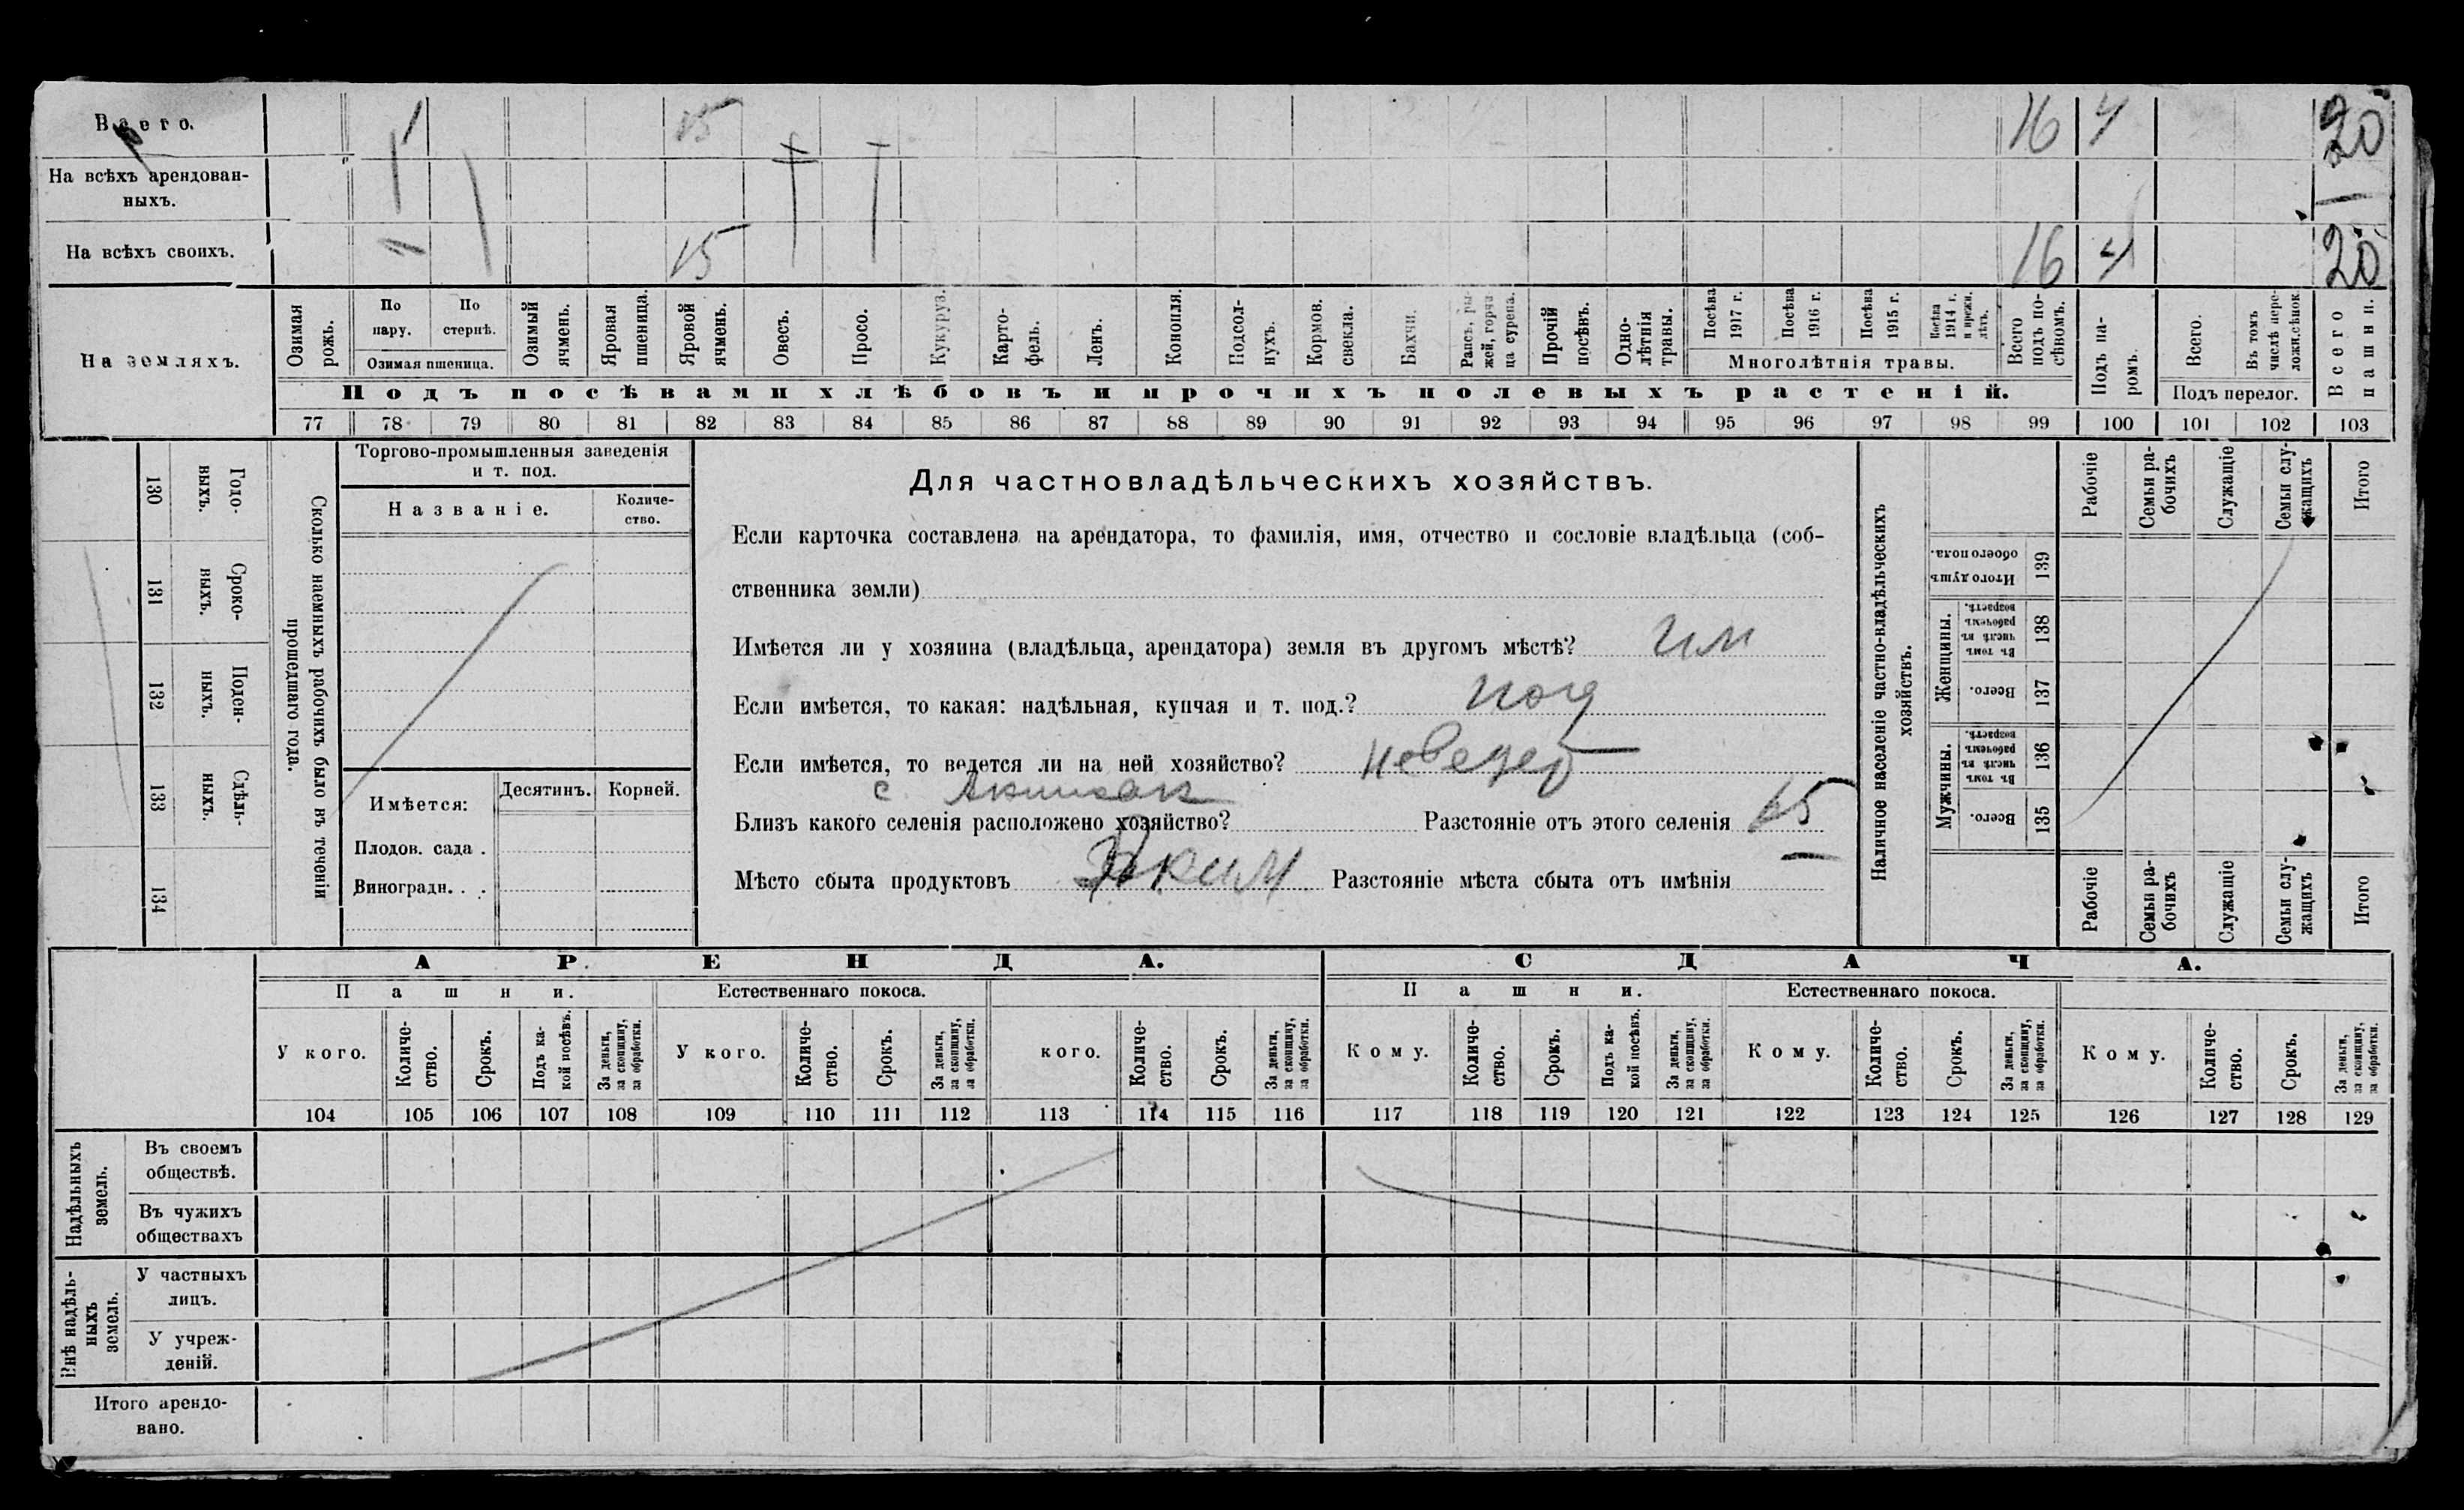 Всего. 15 16 4 20
На всѣхъ арендован-
ныхъ.
На всѣхъ своихъ. 15 16 4 20
На земляхъ.
Озимая рожь.
По пару.
По стернѣ.
Озимая пшеница.
Озимый ячмень.
Яровая пшеница.
Яровой ячмень.
Овесъ.
Просо.
Кукуруз.
Карто-
фель.
Ленъ.
Конопля.
Подсол-
нухъ.
Кормов. свекла.
Бахчи.
Рапсъ, ры-
жей, горчи-
ца сурепа.
Прочій посѣвъ.
Одно-
лѣтнія травы.
Посѣва 1917 г.
Посѣва 1916 г.
Посѣва 1915 г.
Посѣва 1914 г. и прежн. лѣтъ.
Многолѣтнія травы.
Всего подъ по-
сѣвомъ.
Подъ па-
ромъ.
Всего.
Въ томъ числѣ пере-
ложн. сѣнок.
Подъ перелог.
Всего пашни.
Подъ посѣвами хлѣбовъ и прочихъ полевыхъ растеній.
77 78 79 80 81 82 83 84 85 86 87 88 89 90 91 92 93 94 95 96 97 98 99 100 101 102 103
130 Годо-
выхъ.
131 Сроко-
выхъ.
132 Поден-
ныхъ.
133 Сдѣль-
ныхъ.
134
Сколько наемныхъ рабочихъ было въ теченіи
прошедшаго года.
Торгово-промышленныя заведенія
и т. под.
Названіе.
Количе-
ство.
Имѣется:
Десятинъ. Корней.
Плодов. сада .
Виноградн. . .
Для частновладѣльческихъ хозяйствъ.
Если карточка составлена на арендатора, то фамилія, имя, отчество и сословіе владѣльца (соб-
ственника земли)
Имѣется ли у хозяина (владѣльца, арендатора) земля въ другомъ мѣстѣ? им
Если имѣется, то какая: надѣльная, купчая и т. под.?
Если имѣется, то ведется ли на ней хозяйство?
с
Близъ какого селенія расположено хозяйство? Разстояніе отъ этого селенія 15
Мѣсто сбыта продуктовъ Разстояніе мѣста сбыта отъ имѣнія —
Наличное населеніе частно-владѣльческихъ
хозяйствъ.
Рабочіе
Семьи ра-
бочихъ
Служащіе
Семьи слу-
жащихъ
Итого
Итого душъ обоего пола. 139
Женщины.
Въ томъ числѣ въ рабочемъ возрастѣ. 138
Всего. 137
Мужчины.
Въ томъ числѣ въ рабочемъ возрастѣ. 136
Всего. 135
Рабочіе
Семьи ра-
бочихъ
Служащіе
Семьи слу-
жащихъ
Итого
АРЕНДА. СДАЧА.
Пашни. Естественнаго покоса. Пашни. Естественнаго покоса.
У кого.
Количе-
ство.
Срокъ.
Подъ ка-
кой посѣвъ.
За деньги, за скопщину, за обработки.
У кого.
Количе-
ство.
Срокъ.
За деньги, за скопщину, за обработки.
кого.
Количе-
ство.
Срокъ.
За деньги, за скопщину, за обработки.
Кому.
Количе-
ство.
Срокъ.
Подъ ка-
кой посѣвъ.
За деньги, за скопщину, за обработки.
Кому.
Количе-
ство.
Срокъ.
За деньги, за скопщину, за обработки.
Кому.
Количе-
ство.
Срокъ.
За деньги, за скопщину, за обработки.
104 105 106 107 108 109 110 111 112 113 114 115 116 117 118 119 120 121 122 123 124 125 126 127 128 129
Надѣльныхъ
земель.
Въ своемъ
обществѣ.
Въ чужихъ
обществахъ
Внѣ надѣль-
ныхъ
земель.
У частныхъ
лицъ.
У учреж-
деній.
Итого арендо-
вано.